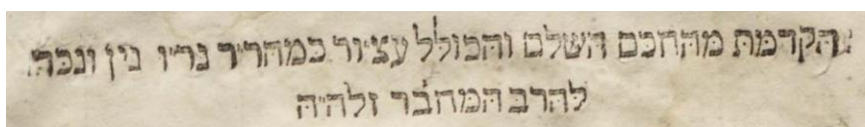 הקדמת מהחכם השלם והכולל עצי״ור כמהר״יר נר״ו נין ונכד
להרב המחבר זלה״ה